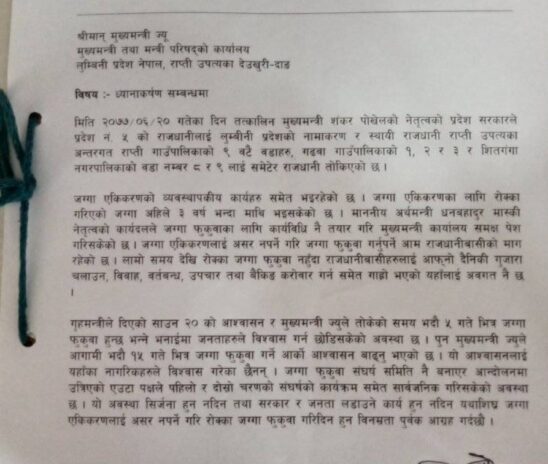 श्रीमान् मुख्यमन्त्री ज्यू
मुख्यमन्त्री तथा मन्त्री परिषद्को कार्यालय
लुम्बिनी प्रदेश नेपाल, राप्ती उपत्यका देउखुरी-दाङ
विषय :- ध्यानाकर्षण सम्बन्धमा
मिति २०७७/०६/२० गतेका दिन तत्कालिन मुख्यमन्त्री शंकर पोखेलको नेतृत्वको प्रदेश सरकारले
प्रदेश नं. ५ को राजधानीलाई लुम्बीनी प्रदेशको नामाकरण र स्थायी राजधानी राप्ती उपत्यका
अन्तरगत राप्ती गाउँपालिकाको ९ वटै वडाहरु, गढवा गाउँपालिकाको १, २ र ३ र शितगंगा
नगरपालिकाको वडा नम्बर ८ र ९ लाई समेटेर राजधानी तोकिएको छ ।
जग्गा एकिकरणको व्यवस्थापकीय कार्यहरु समेत भइरहेको छ । जग्गा एकिकरणका लागि रोक्का
गरिएको जग्गा अहिले ३ वर्ष भन्दा माथि भइसकेको छ । माननीय अर्थमन्त्री धनबहादुर मास्की
नेतृत्वको कार्यदलले जग्गा फुकुवाका लागि कार्यविधि नै तयार गरि मुख्यमन्त्री कार्यालय समक्ष पेश
गरिसकेको छ । जग्गा एकिकरणलाई असर नपर्ने गरि जग्गा फुकुवा गर्नुपर्ने आम राजधानीबासीको माग
रहेको छ । लामो समय देखि रोक्का जग्गा फुकुवा नहुँदा राजधानीबासीहरुलाई आफ्नो दैनिकी गुजारा
चलाउन, विवाह, वर्तबन्ध, उपचार तथा बैकिङ करोवार गर्न समेत गाह्रो भएको यहाँलाई अवगत नै छ
।
गृहमन्त्रीले दिएको साउन २० को आश्वासन र मुख्यमन्त्री ज्युले तोकेको समय भदौ ५ गते भित्र जग्गा
फुकुवा हुन्छ भन्ने भनाईमा जनताहरुले विश्वास गर्न छोडिसकेको अवस्था छ । पुन मुख्यमन्त्री ज्युले
आगामी भदौ १५ गते भित्र जग्गा फुकुवा गर्ने आर्को आश्वासन बाढ्नु भएको छ । यो आश्वासनलाई
यहाँका नागरिकहरुले विश्वास गरेका छैनन् । जग्गा फुकुवा संघर्ष समिति नै बनाएर आन्दोलनमा
उत्रिएको एउटा पक्षले पहिलो र दोस्रो चरणको संघर्षको कार्यक्रम समेत सार्वजनिक गरिसकेको अवस्था
छ । यो अवस्था सिर्जना हुन नदिन तथा सरकार र जनता लडाउने कार्य हुन नदिन यथाशिघ्र जग्गा
एकिकरणलाई असर नपर्ने गरि रोक्का जग्गा फुकुवा गरिदिन हुन विनम्रता पुर्वक आग्रह गर्दछौ ।